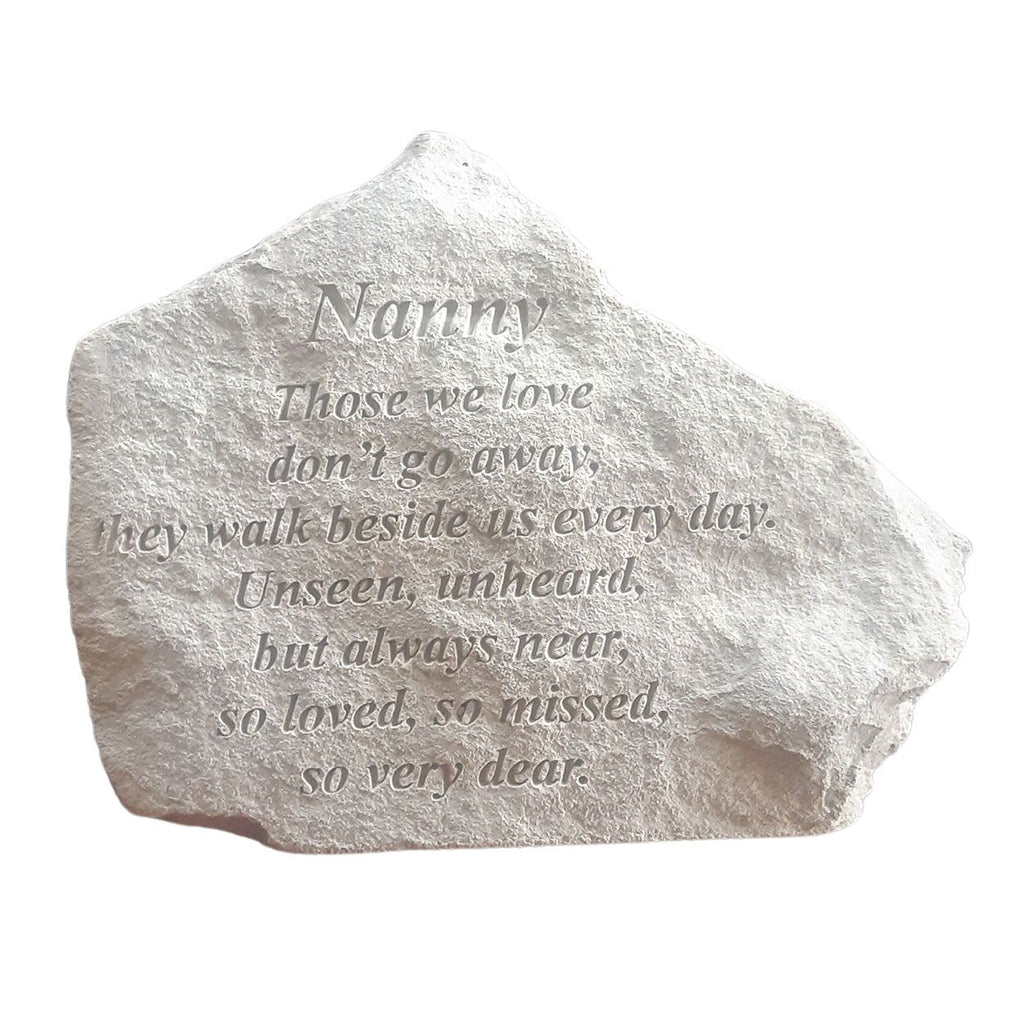 Nanny
Those we love
don't go away,
they walk beside us every day.
Unseen, unheard,
but always near,
so loved, so missed,
so very dear.